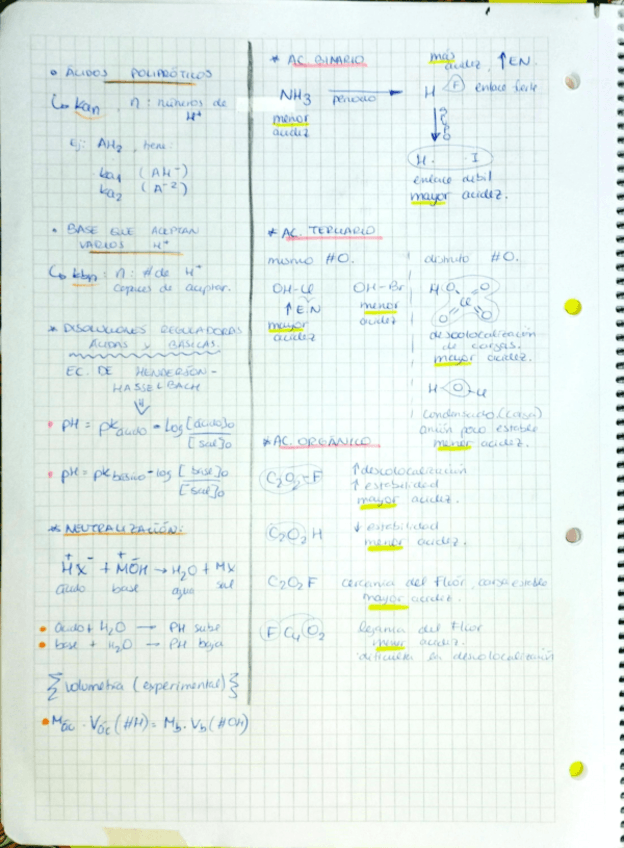 • ÁCIDOS POLIPRÓTICOS
↳ kan, n: números de H⁺
Ej: AH₂, tiene:
ka₁ (AH⁻)
ka₂ (A⁻²)
• BASE QUE ACEPTAN
VARIOS H⁺
↳ kbn: n: # de H⁺
capaces de aceptar.
* DISOLUCIONES REGULADORAS
ÁCIDAS Y BÁSICAS.
EC. DE HENDERSON-
HASSELBACH
* pH = pKácido - log [ácido]₀
[sal]₀
* pH = pKbásico - log [base]₀
[sal]₀
* NEUTRALIZACIÓN:
H⁺X⁻ + M⁺OH⁻ → H₂O + MX
ácido base agua sal
• ácido + H₂O → PH sube
• base + H₂O → PH baja
{volumetría (experimental)}
• Mác · Vác (#H) = Mb · Vb (#OH)
* AC. BINARIO
más acidez, ↑EN.
NH₃ periodo → H F enlace fuerte
menor
acidez
↓
H. I
enlace debil
mayor acidez.
* AC. TERNARIO
mismo #O.
OH-Cl OH-Br
↑E.N menor
mayor acidez
acidez
distinto #O.
H O Cl O O O
descolocalización
de cargas.
mayor acidez.
H O Cl
(carga)
anión poco estable
menor acidez.
* AC. ORGÁNICO
C₂O₂F ↑descolocalización
↑estabilidad
mayor acidez.
C₂O₂H ↓estabilidad
menor acidez.
C₂O₂F cercanía del Flúor, carga estable
mayor acidez.
F C₄ O₂ lejanía del Flúor
menor acidez.
dificulta en descolocalización